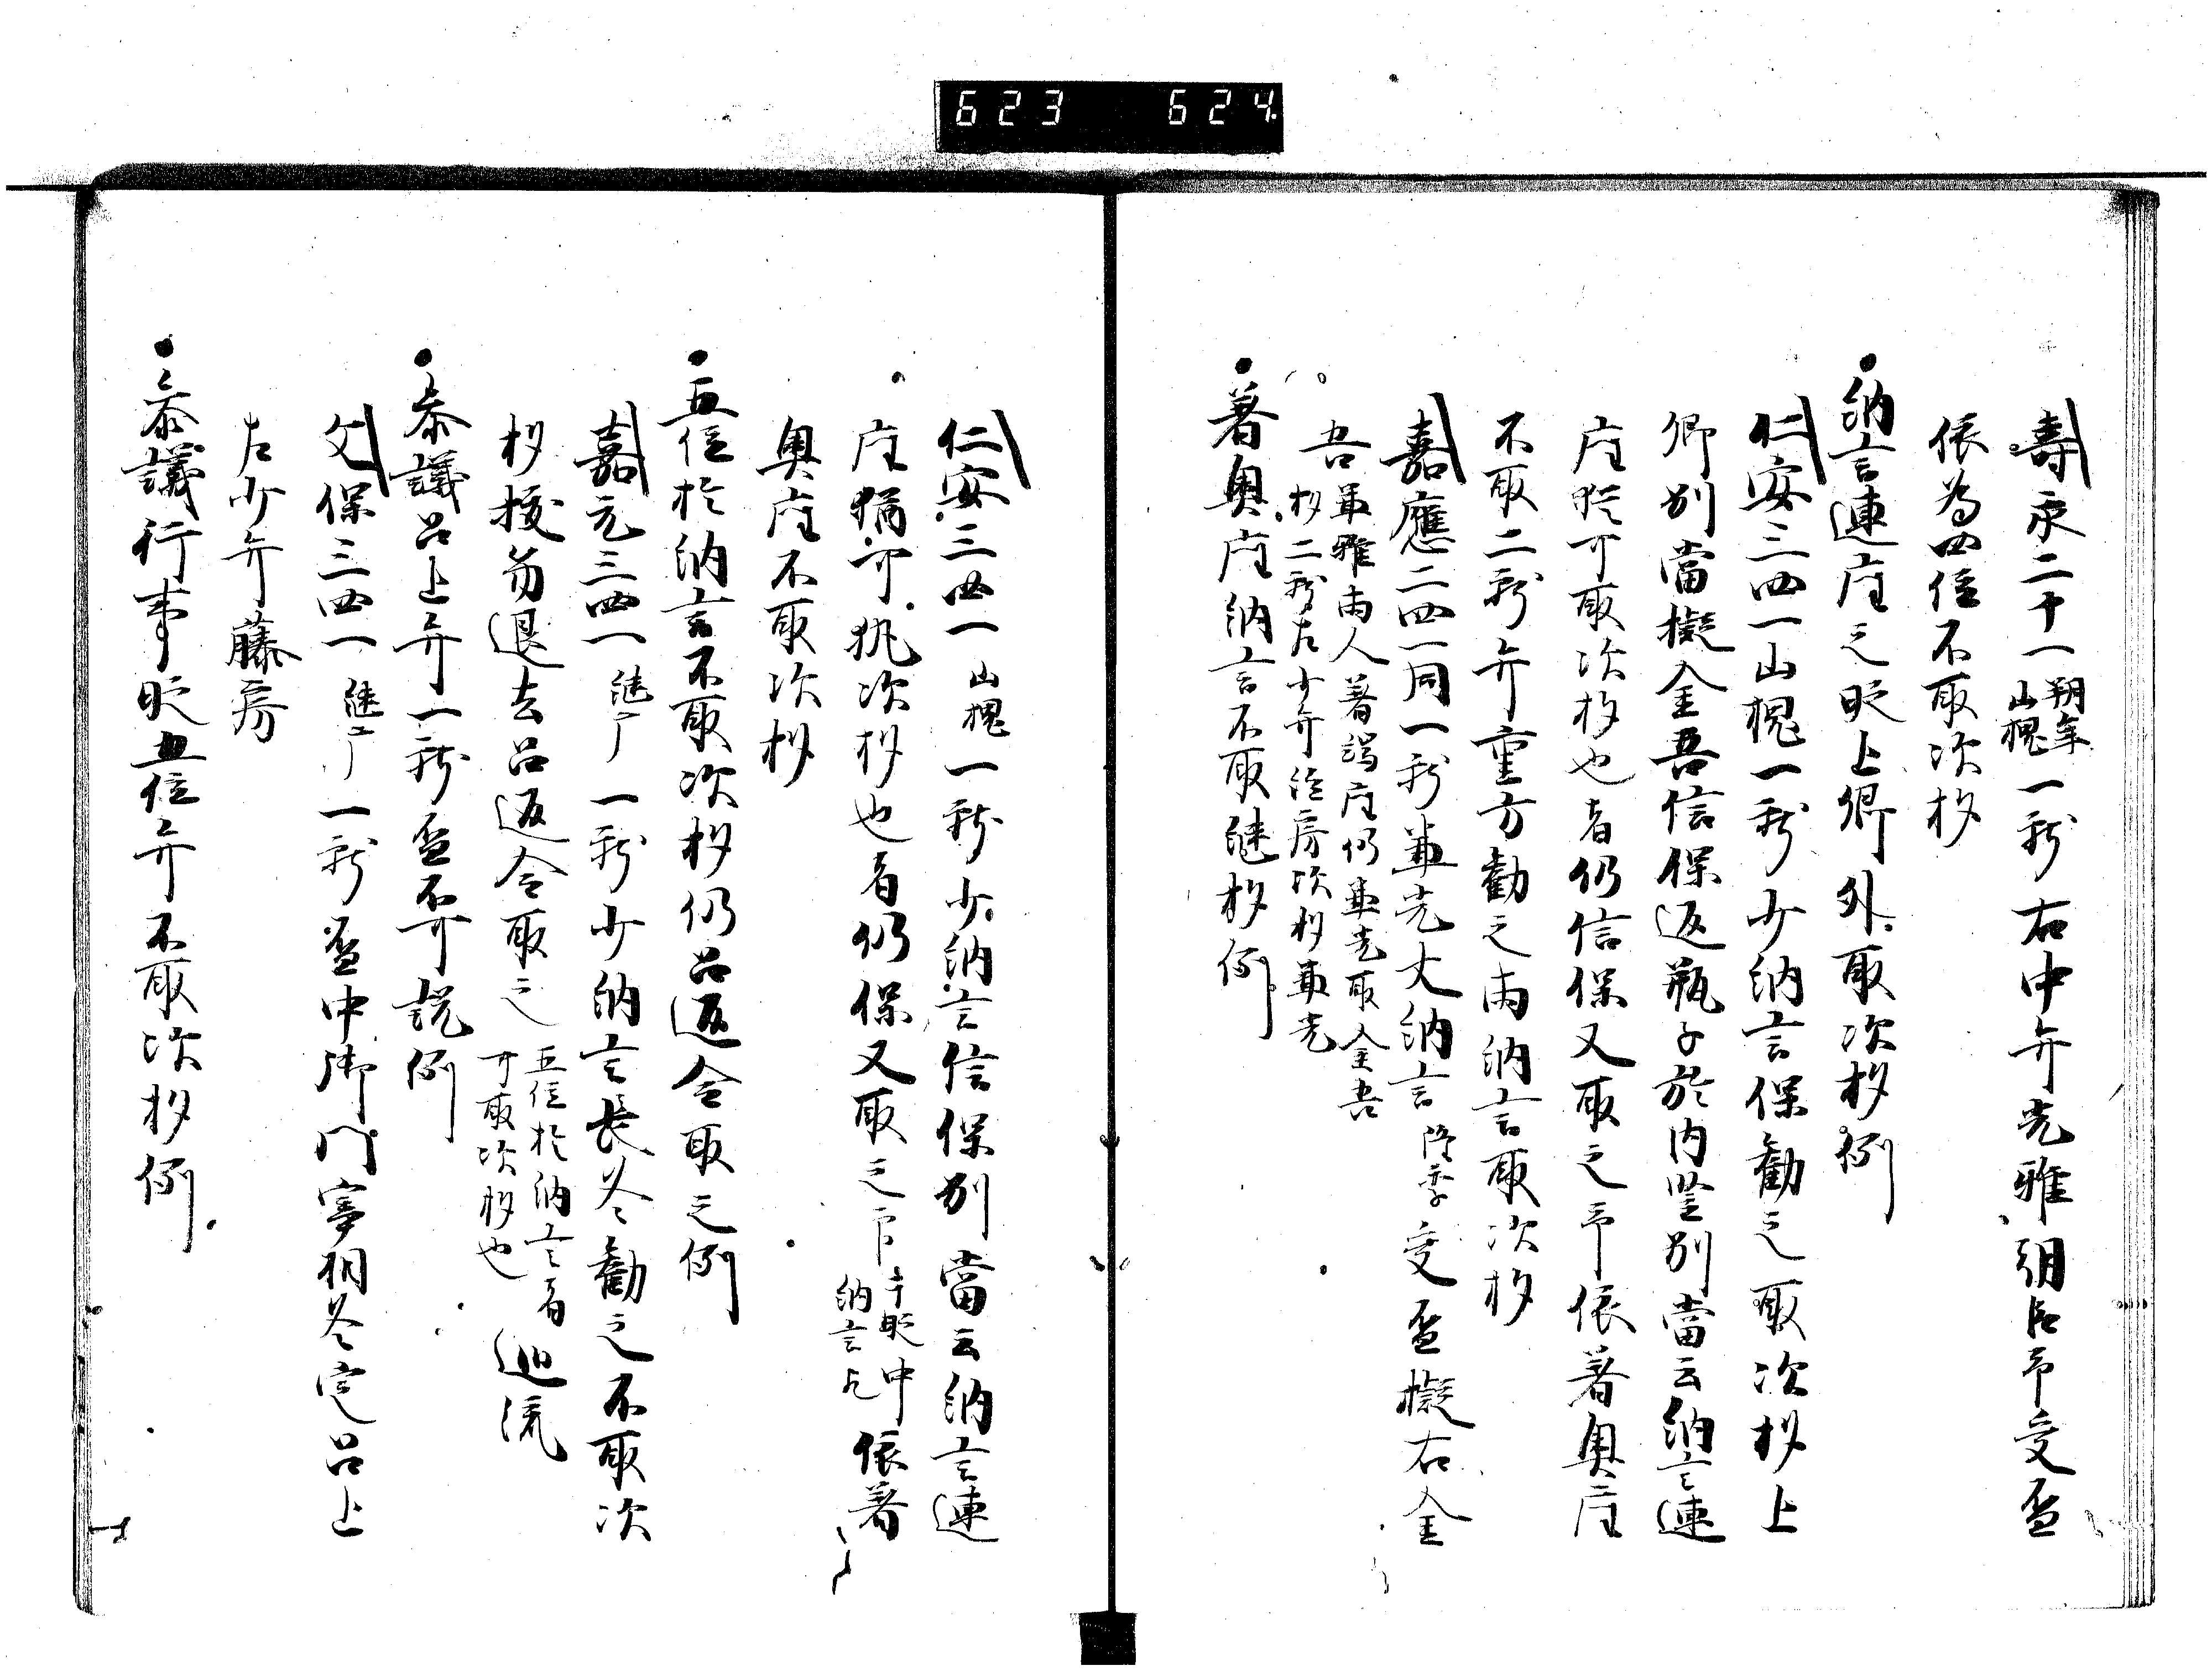 623 624
壽永二十一朔年山槐一献右中弁光雅朝臣予受盃
依為四位不取次杓
納言連座之時上卿外取次杓例
仁安三四一山槐一献少納言保勸之取次杓上
卿別當擬金吾信保返瓶子於内竪別當云納言連
座猶可取次杓也者仍信保又取之予依著奥座
不取二献弁重方勸之両納言取次杓
嘉應二四一同一献兼光大納言隆季受盃擬右金
吾兼雅両人著端座仍兼光取金吾
杓二献左少弁経房次杓兼光
著奥座納言不取継杓例
仁安三四一山槐一献少納言信保別當云納言連
座猶可執次杓也者仍保又取之于時中納言也依著
奥座不取次杓
五位於納言不取次杓仍召返令取之例
嘉元三四一継一献少納言長冬勸之不取次
杓授笏退去召返令取之五位於納言者可取次杓也巡流
参議召上弁一献盃不可説例
文保三四一継一献盃中御門宰相冬定召上
左少弁藤房
参議行事時五位弁不取次杓例